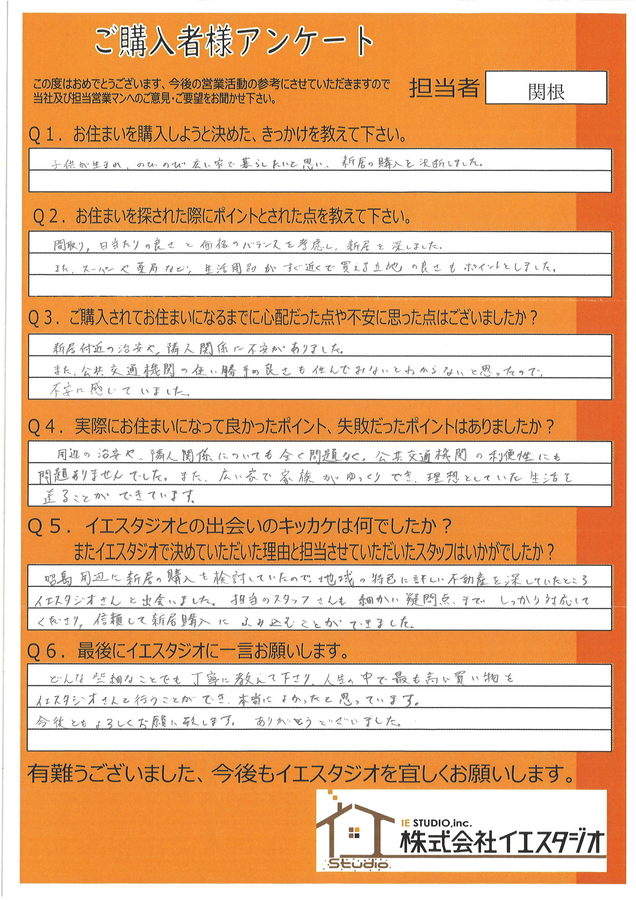 ご購入者様アンケート
この度はおめでとうございます、今後の営業活動の参考にさせていただきますので
当社及び担当営業マンへのご意見・ご要望をお聞かせ下さい。
担当者 関根
Q1．お住まいを購入しようと決めた、きっかけを教えて下さい。
子供が生まれ、のびのび広い家で暮らしたいと思い、新居の購入を決断しました。
Q2．お住まいを探された際にポイントとされた点を教えて下さい。
間取り、日当たりの良さと価格のバランスを考慮し、新居を探しました。
また、スーパーや薬局など、生活用品がすぐ近くで買える立地の良さもポイントとしました。
Q3．ご購入されてお住まいになるまでに心配だった点や不安に思った点はございましたか？
新居付近の治安や、隣人関係に不安がありました。
また、公共交通機関の使い勝手の良さも住んでみないとわからないと思ったので、
不安に感じていました。
Q4．実際にお住まいになって良かったポイント、失敗だったポイントはありましたか？
周辺の治安や、隣人関係についても全く問題なく、公共交通機関の利便性にも
問題ありませんでした。また、広い家で家族がゆっくりでき、理想としていた生活を
送ることができています。
Q5．イエスタジオとの出会いのキッカケは何でしたか？
またイエスタジオで決めていただいた理由と担当させていただいたスタッフはいかがでしたか？
昭島周辺に新居の購入を検討していたので、地域の特色に詳しい不動産を探していたところ
イエスタジオさんと出会いました。担当のスタッフさんも細かい疑問点まで、しっかり対応して
くださり、信頼して新居購入にふみ込むことができました。
Q6．最後にイエスタジオに一言お願いします。
どんな些細なことでも丁寧に教えて下さり、人生の中で最も高い買い物を
イエスタジオさんと行うことができ、本当によかったと思っています。
今後ともよろしくお願い致します。 ありがとうございました。
有難うございました、今後もイエスタジオを宜しくお願いします。
IE STUDIO,inc.
株式会社イエスタジオ
Studio